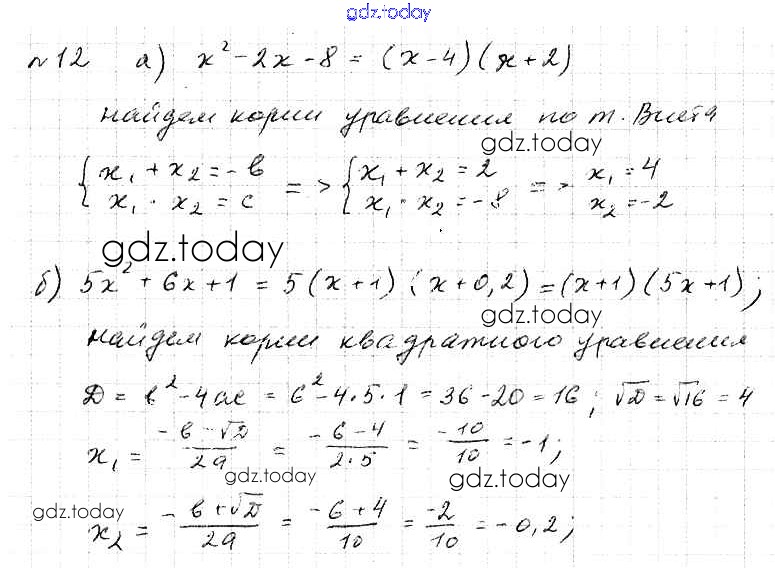 gdz.today
№12 а) x² - 2x - 8 = (x - 4)(x + 2)
найдем корни уравнения по т. Виета
gdz.today
{ x₁ + x₂ = -b => { x₁ + x₂ = 2 => x₁ = 4
{ x₁ · x₂ = c { x₁ · x₂ = -8 x₂ = -2
gdz.today
б) 5x² + 6x + 1 = 5(x + 1)(x + 0,2) = (x + 1)(5x + 1);
gdz.today
найдем корни квадратного уравнения
Д = b² - 4ac = 6² - 4·5·1 = 36 - 20 = 16; √Д = √16 = 4
x₁ = (-b - √Д)/2a = (-6 - 4)/2·5 = -10/10 = -1;
gdz.today gdz.today
gdz.today
x₂ = (-b + √Д)/2a = (-6 + 4)/10 = -2/10 = -0,2;